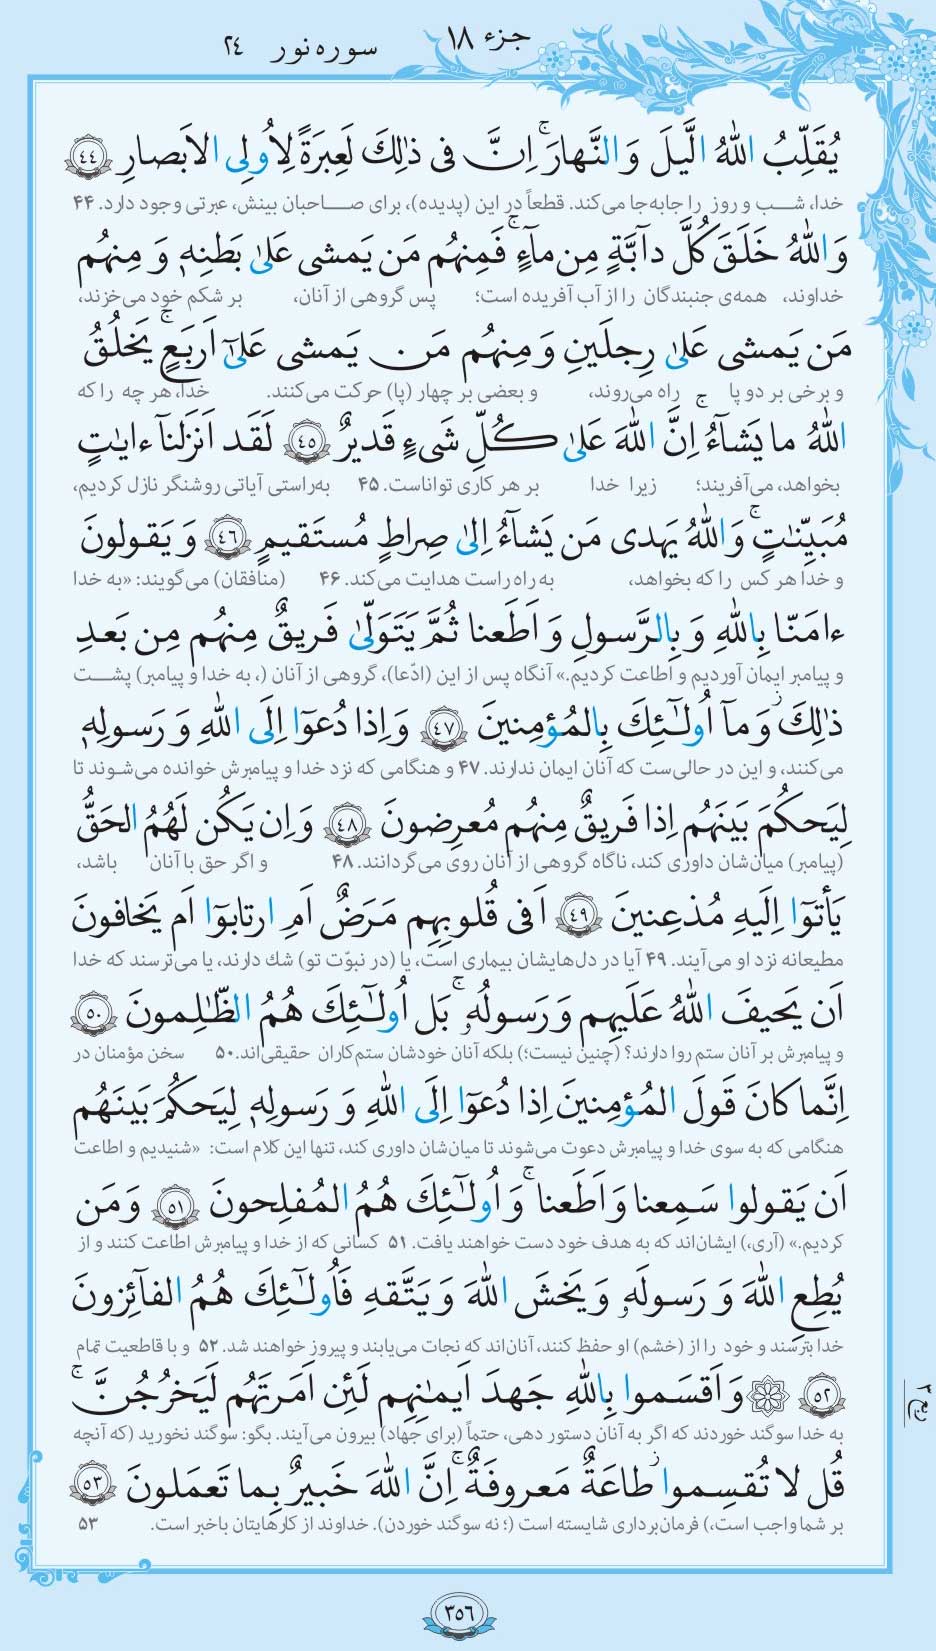 جزء ۱۸
سوره نور ۲۴
یُقَلِّبُ اللّٰهُ الَّیلَ وَ النَّهارَ ۚ اِنَّ فی ذٰلِکَ لَعِبرَةً لِاُولِی الاَبصارِ ﴿٤٤﴾
خدا، شب و روز را جابه‌جا می‌کند. قطعاً در این (پدیده)، برای صاحبان بینش، عبرتی وجود دارد. ۴۴
وَ اللّٰهُ خَلَقَ کُلَّ دآبَّةٍ مِن مآءٍ ۚ فَمِنهُم مَن یَمشی عَلیٰ بَطنِهٖ وَ مِنهُم
خداوند، همه‌ی جنبندگان را از آب آفریده است؛ پس گروهی از آنان، بر شکم خود می‌خزند،
مَن یَمشی عَلیٰ رِجلَینِ وَ مِنهُم مَن یَمشی عَلیٰٓ اَربَعٍ ۚ یَخلُقُ
و برخی بر دو پا راه می‌روند، و بعضی بر چهار (پا) حرکت می‌کنند. خدا، هر چه را که
اللّٰهُ ما یَشآءُ ۚ اِنَّ اللّٰهَ عَلیٰ کُلِّ شَیءٍ قَدیرٌ ﴿٤٥﴾ لَقَد اَنزَلنآ ءایٰتٍ
بخواهد، می‌آفریند؛ زیرا خدا بر هر کاری تواناست. ۴۵ به‌راستی آیاتی روشنگر نازل کردیم،
مُبَیِّنٰتٍ ۚ وَ اللّٰهُ یَهدی مَن یَشآءُ اِلیٰ صِراطٍ مُستَقیمٍ ﴿٤٦﴾ وَ یَقولونَ
و خدا هر کس را که بخواهد، به راه راست هدایت می‌کند. ۴۶ (منافقان) می‌گویند: «به خدا
ءامَنّا بِاللّٰهِ وَ بِالرَّسولِ وَ اَطَعنا ثُمَّ یَتَوَلّیٰ فَریقٌ مِنهُم مِن بَعدِ
و پیامبر ایمان آوردیم و اطاعت کردیم.» آنگاه پس از این (ادّعا)، گروهی از آنان (، به خدا و پیامبر) پشت
ذٰلِکَ ۚ وَ مآ اُولٰٓئِکَ بِالمُؤمِنینَ ﴿٤٧﴾ وَ اِذا دُعوٓا اِلَی اللّٰهِ وَ رَسولِهٖ
می‌کنند، و این در حالی‌ست که آنان ایمان ندارند. ۴۷ و هنگامی که نزد خدا و پیامبرش خوانده می‌شوند تا
لِیَحکُمَ بَینَهُم اِذا فَریقٌ مِنهُم مُعرِضونَ ﴿٤٨﴾ وَ اِن یَکُن لَهُمُ الحَقُّ
(پیامبر) میان‌شان داوری کند، ناگاه گروهی از آنان روی می‌گردانند. ۴۸ و اگر حق با آنان باشد،
یَأتوٓا اِلَیهِ مُذعِنینَ ﴿٤٩﴾ اَفی قُلوبِهِم مَرَضٌ اَمِ ارتابوٓا اَم یَخافونَ
مطیعانه نزد او می‌آیند. ۴۹ آیا در دل‌هایشان بیماری است، یا (در نبوّت تو) شك دارند، یا می‌ترسند که خدا
اَن یَحیفَ اللّٰهُ عَلَیهِم وَ رَسولُهٗ ۚ بَل اُولٰٓئِکَ هُمُ الظّٰلِمونَ ﴿٥٠﴾
و پیامبرش بر آنان ستم روا دارند؟ (چنین نیست؛) بلکه آنان خودشان ستم‌کاران حقیقی‌اند.۵۰ سخن مؤمنان در
اِنَّما کانَ قَولَ المُؤمِنینَ اِذا دُعوٓا اِلَی اللّٰهِ وَ رَسولِهٖ لِیَحکُمَ بَینَهُم
هنگامی که به سوی خدا و پیامبرش دعوت می‌شوند تا میان‌شان داوری کند، تنها این کلام است: «شنیدیم و اطاعت
اَن یَقولوا سَمِعنا وَ اَطَعنا ۚ وَ اُولٰٓئِکَ هُمُ المُفلِحونَ ﴿٥١﴾ وَ مَن
کردیم.» (آری،) ایشان‌اند که به هدف خود دست خواهند یافت. ۵۱ کسانی که از خدا و پیامبرش اطاعت کنند و از
یُطِعِ اللّٰهَ وَ رَسولَهٗ وَ یَخشَ اللّٰهَ وَ یَتَّقهِ فَاُولٰٓئِکَ هُمُ الفآئِزونَ
خدا بترسند و خود را از (خشم) او حفظ کنند، آنان‌اند که نجات می‌یابند و پیروز خواهند شد. ۵۲ و با قاطعیت تمام
﴿٥٢﴾ وَ اَقسَموا بِاللّٰهِ جَهدَ اَیمٰنِهِم لَئِن اَمَرتَهُم لَیَخرُجُنَّ ۚ
ربع ۳
به خدا سوگند خوردند که اگر به آنان دستور دهی، حتماً (برای جهاد) بیرون می‌آیند. بگو: سوگند نخورید (که آنچه
قُل لا تُقسِموا ۚ طاعَةٌ مَعروفَةٌ ۚ اِنَّ اللّٰهَ خَبیرٌ بِما تَعمَلونَ ﴿٥٣﴾
بر شما واجب است،) فرمان‌برداری شایسته است (؛ نه سوگند خوردن). خداوند از کارهایتان باخبر است. ۵۳
٣٥٦